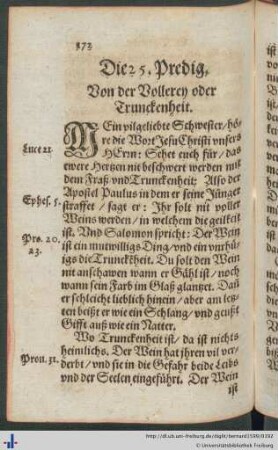 373
Die 25. Predig,
Von der Vollerey oder
Trunckenheit.
MEin vilgeliebte Schwester / hö-
re die Wort Jesu Christi vnsers
HErrn: Sehet euch für / das
ewere Hertzen nit beschwert werden mit
dem Fraß vnd Trunckenheit: Also der
Apostel Paulus in dem er seine Jünger
straffet / sagt er: Ihr solt nit voller
Weins werden / in welchem die geilheit
ist. Vnd Salomon spricht: Der Wein
ist ein mutwilligs Ding / vnd ein vnrhü-
igs die Trunckheit. Du solt den Wein
nit anschawen wann er Gähl ist / noch
wann sein Farb im Glaß glantzt. Dañ
er schleicht lieblich hinein / aber am letz-
ten beißt er wie ein Schlang / vnd geußt
Gifft auß wie ein Natter.
Wo Trunckenheit ist / da ist nichts
heimlichs. Der Wein hat jhren vil ver-
derbt / vnd sie in die Gefahr beide Leibs
vnd der Seelen eingeführt. Der Wein
ist
Luce 21
Ephes. 5.
Pro. 20.
23.
Prou. 31.
http://dl.ub.uni-freiburg.de/diglit/bernard1599/0392
© Universitätsbibliothek Freiburg